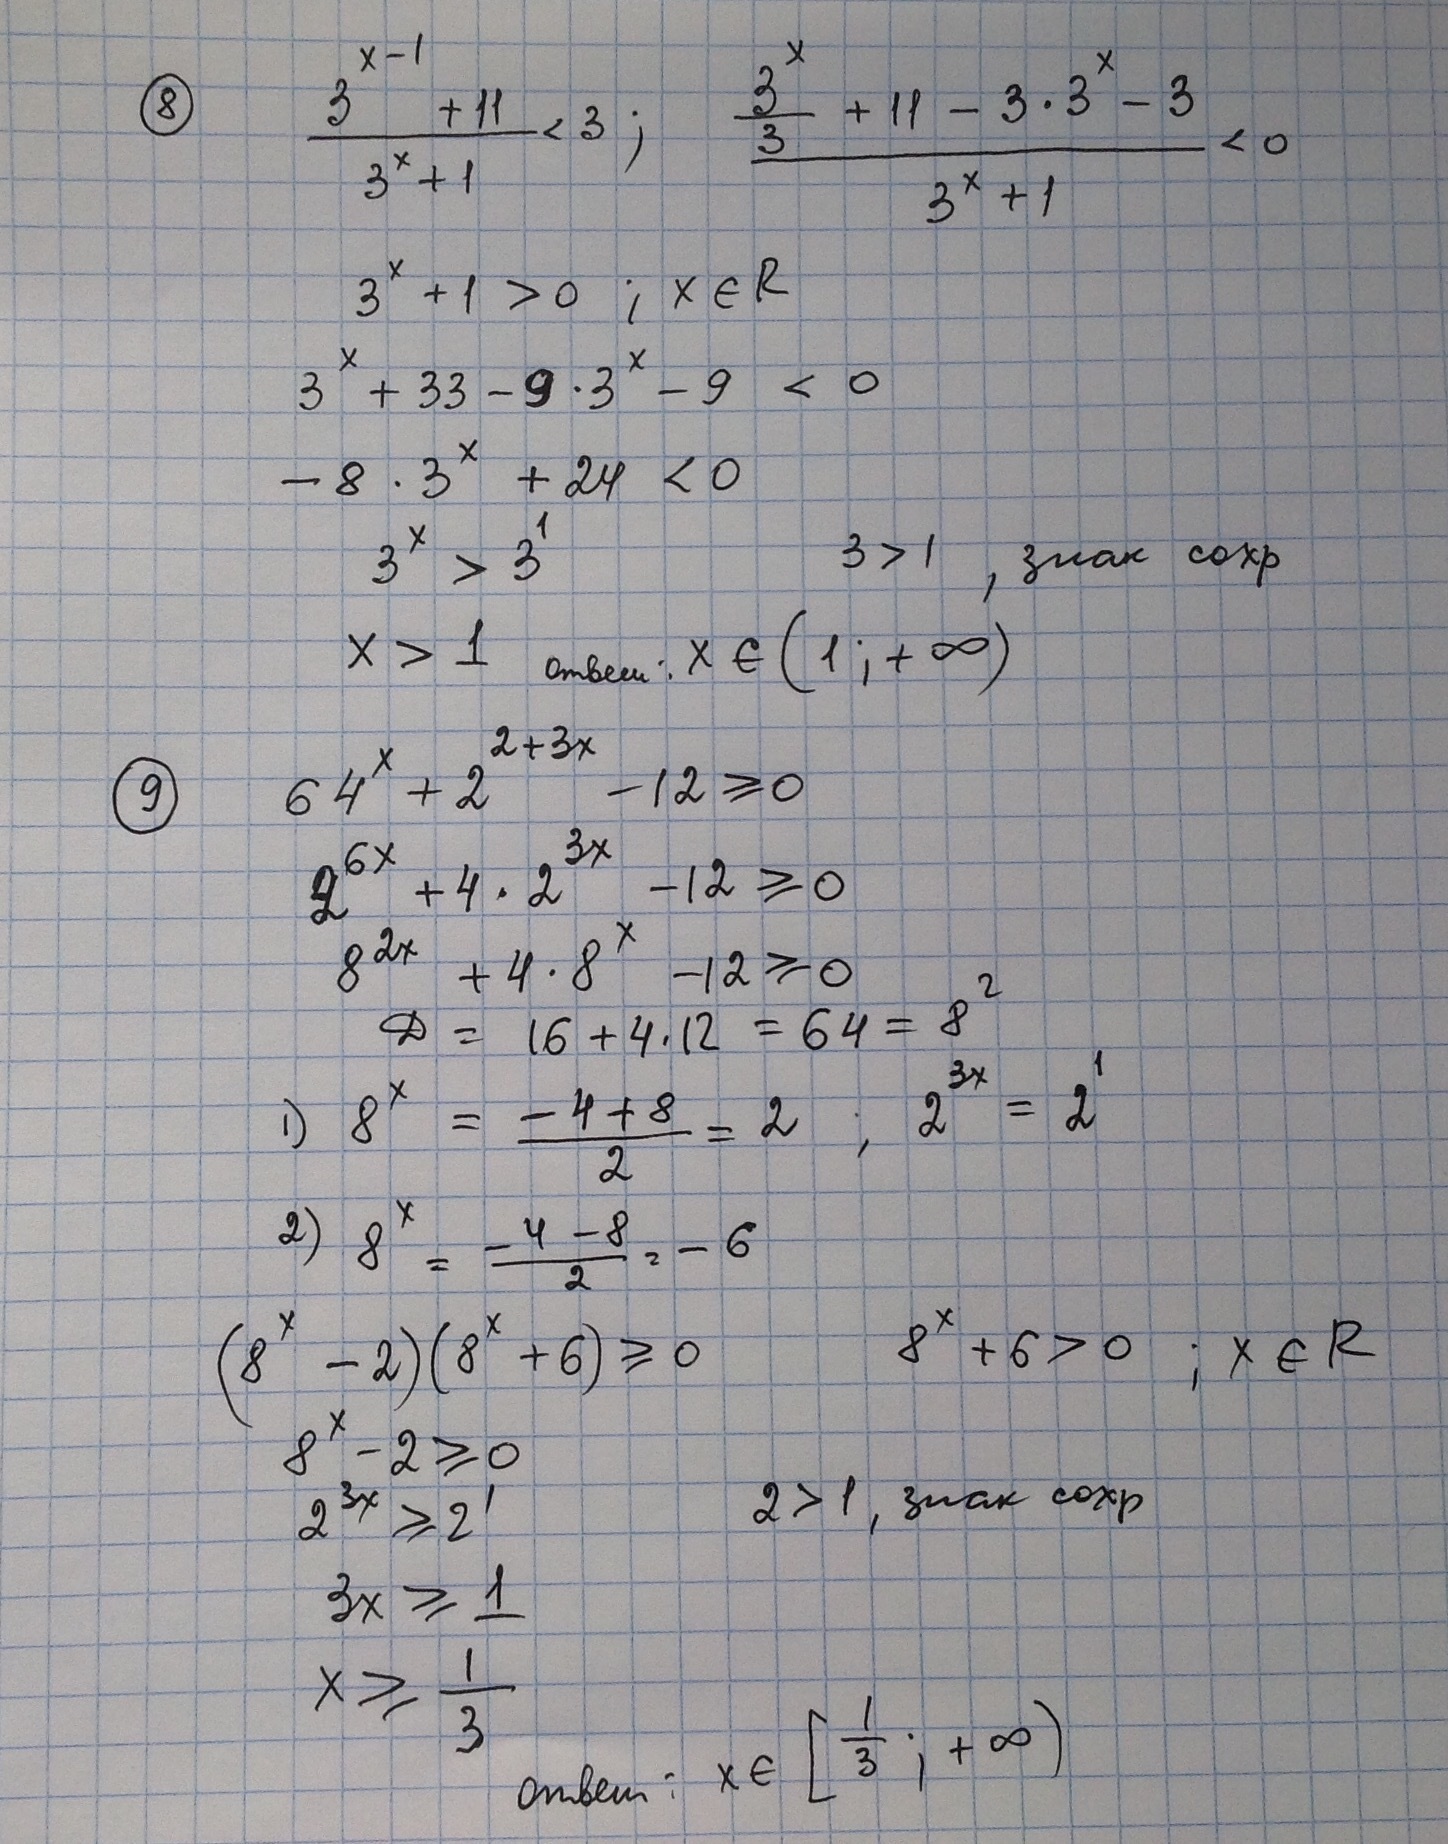 ⑧ (3^(x-1) + 11)/(3^x + 1) < 3 ; (3^x/3 + 11 - 3·3^x - 3)/(3^x + 1) < 0
3^x + 1 > 0 ; x ∈ R
3^x + 33 - 9·3^x - 9 < 0
-8·3^x + 24 < 0
3^x > 3^1 3 > 1, знак сохр
x > 1 ответ: x ∈ (1; +∞)
⑨ 64^x + 2^(2+3x) - 12 ⩾ 0
2^(6x) + 4·2^(3x) - 12 ⩾ 0
8^(2x) + 4·8^x - 12 ⩾ 0
D = 16 + 4·12 = 64 = 8^2
1) 8^x = (-4+8)/2 = 2 ; 2^(3x) = 2^1
2) 8^x = (-4-8)/2 = -6
(8^x - 2)(8^x + 6) ⩾ 0 8^x + 6 > 0 ; x ∈ R
8^x - 2 ⩾ 0
2^(3x) ⩾ 2^1 2 > 1, знак сохр
3x ⩾ 1
x ⩾ 1/3
ответ: x ∈ [1/3; +∞)